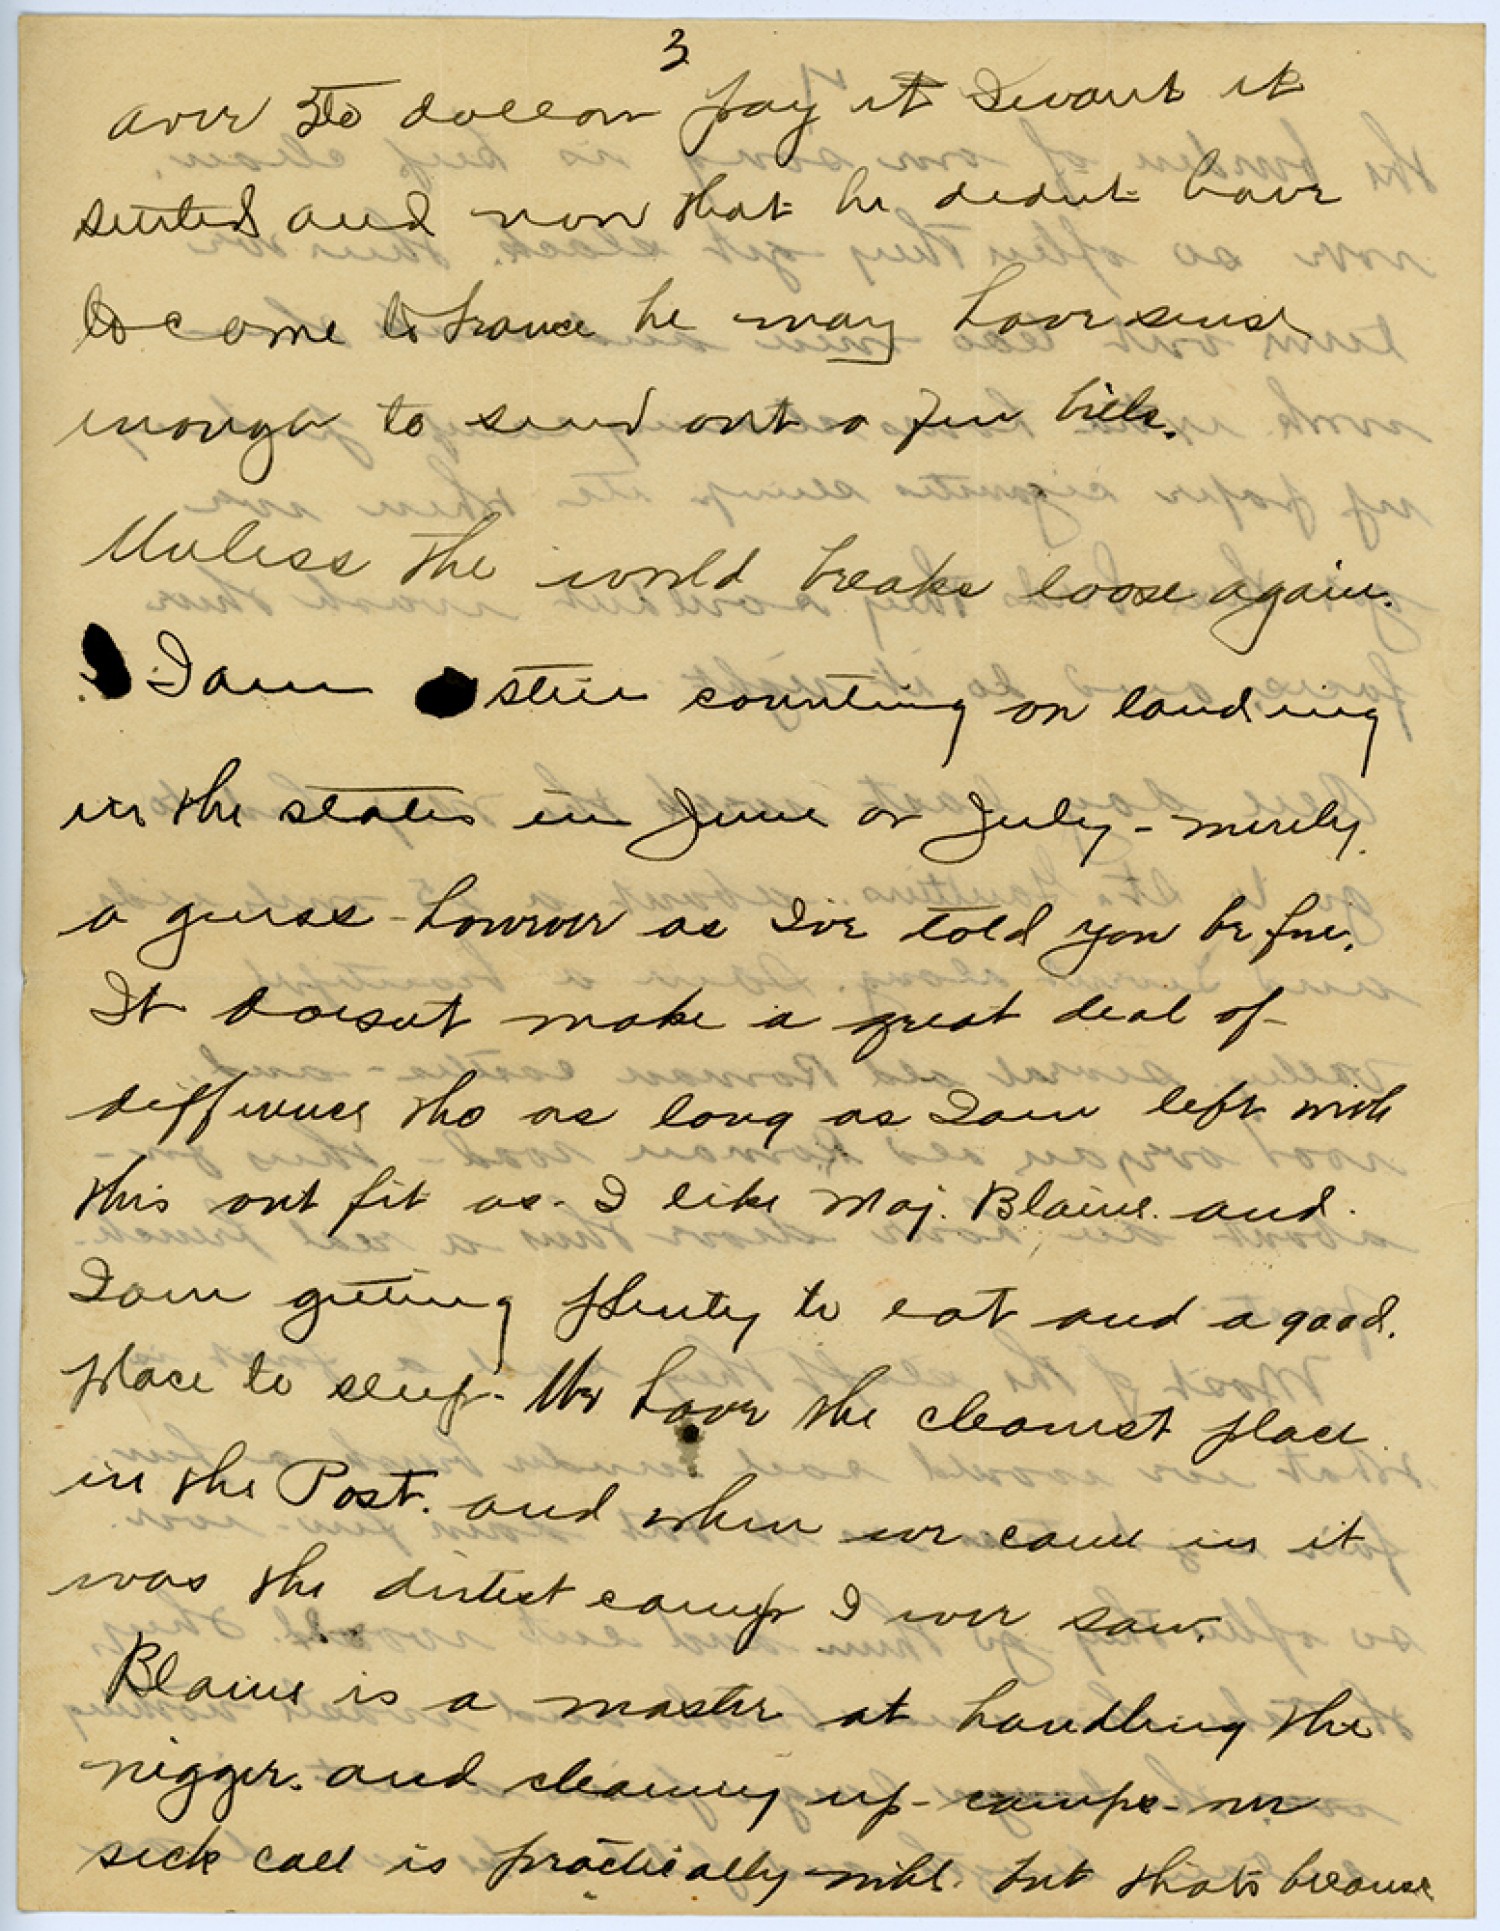 3
over 50 dollars pay it I want it
settled and now that he didnt have
to come to France he may have sense
enough to send out a few bills.
Unless the world breaks loose again.
I am still counting on landing
in the states in June or July - merely
a guess - however as I've told you before.
It doesnt make a great deal of
difference tho as long as I am left with
this outfit as - I like Maj. Blaine. and
I am getting plenty to eat and a good.
place to sleep - We have the cleanest place
in the Post. and when we came in it
was the dirtest camp I ever saw.
Blaine is a master at handling the
nigger. and cleaning up - camps - our
sick call is practically - nihl. but thats because